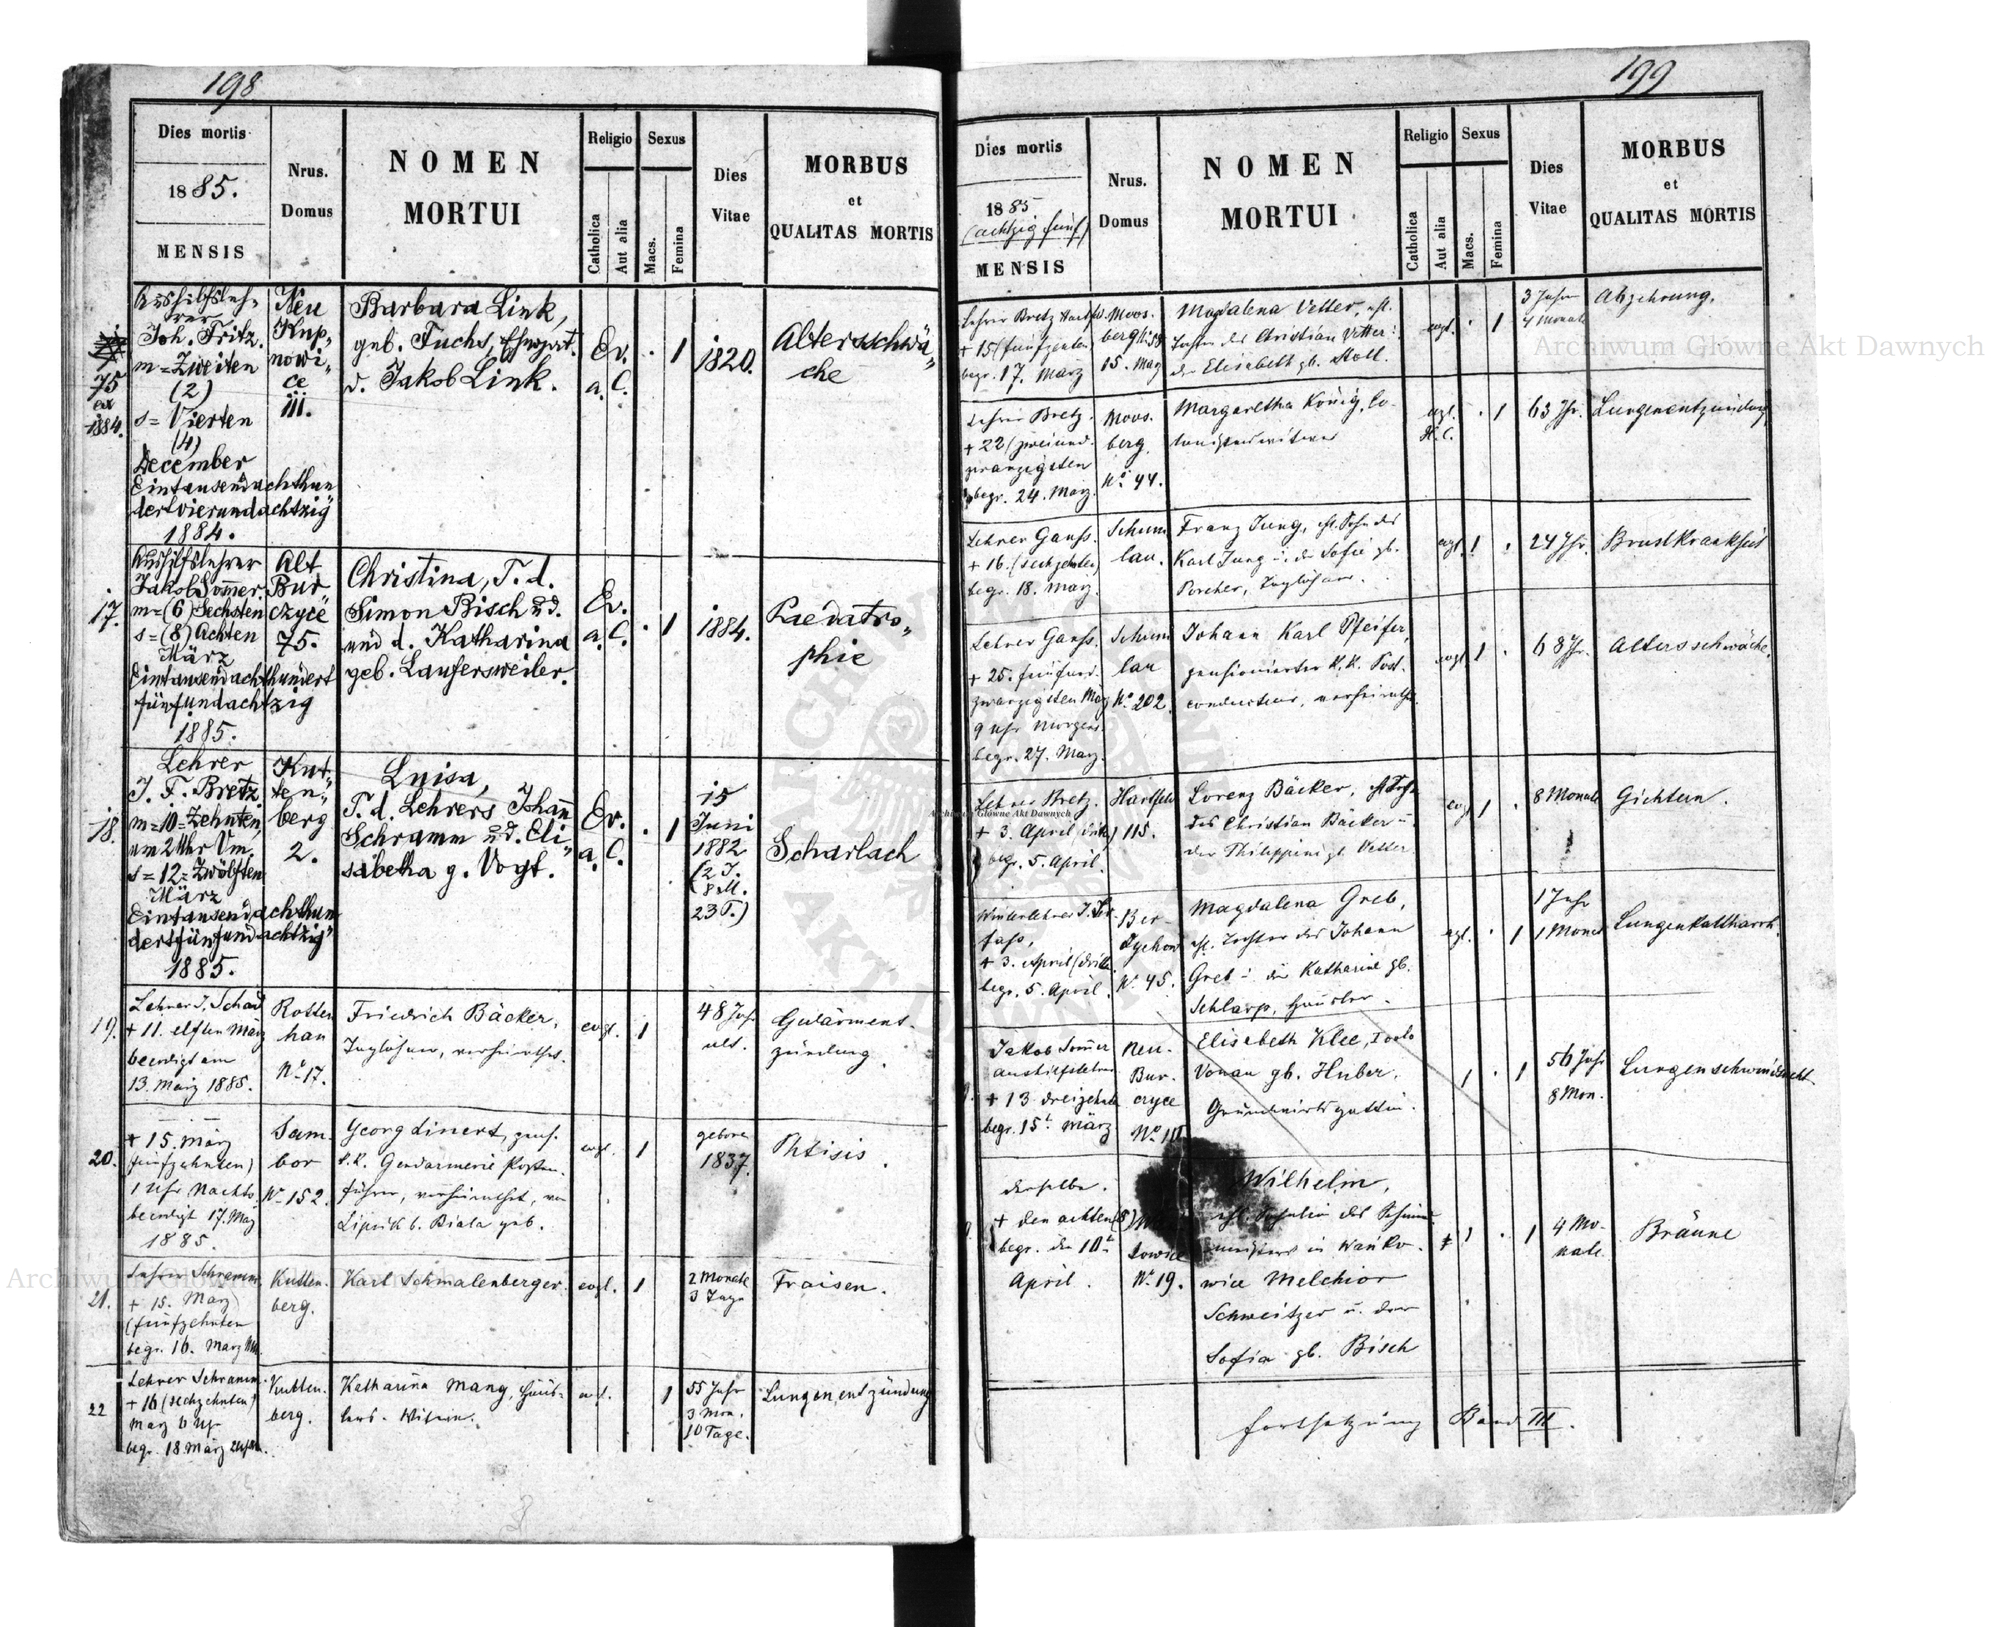 198
Dies mortis
1885.
MENSIS
Nrus.
Domus
NOMEN
MORTUI
Religio
Catholica
Aut alia
Sexus
Macs.
Femina
Dies
Vitae
MORBUS
et
QUALITAS MORTIS
75
ex
1884.
Aushilfsleh-
rer
Joh. Fritz.
m = Zweiten
(2)
s = Vierten
(4)
December
Eintausendachthun
dertvierundachtzig
1884.
Neu
Kup„
nowi„
ce
III.
Barbara Link,
geb. Fuchs, Ehegatt.
d. Jakob Link.
Ev.
a. C.
1
1820.
Altersschwä„
che
17.
Aushilfslehrer
Jakob Sommer.
m = (6) Sechsten
s = (8) Achten
März
Eintausendachthundert
fünfundachtzig
1885.
Alt
Bur
czyce
75.
Christina, T. d.
Simon Bisch u. d.
und d. Katharina
geb. Laufersweiler.
Ev.
a. C.
1
1884.
Paedatro„
phie
18.
Lehrer
J. F. Bretz
m = 10 = Zehnten,
um 2 Uhr Vm.
s = 12 = Zwölften
März
Eintausendachthun
dertfünfundachtzig
1885.
Kut„
ten„
berg
2.
Luisa,
T. d. Lehrers Johann
Schramm u. d. Eli„
sabetha g. Vogt.
Ev.
a. C.
1
15
Juni
1882
(2 J.
8 M.
23 T.)
Scharlach
19.
Lehrer J. Schad
+ 11. elften März
beerdigt am
13. März 1885.
Rotten
han
No 17.
Friedrich Bäcker,
Taglöhner, verheirathet.
evgl.
1
48 Jahr
alt.
Gedärment-
zündung
20.
+ 15. März
(fünfzehnten)
1 Uhr Nachts.
beerdigt 17. März
1885.
Sam-
bor
No 152.
Georg Linert, pens.
k.k. Gendarmerie Posten-
führer, verheirathet, von
Lipnik b. Biala geb.
evgl.
1
geboren
1837.
Phtisis.
21.
Lehrer Schramm
+ 15. März
(fünfzehnten
begr. 16. März
Kutten-
berg.
Karl Schmalenberger.
evgl.
1
2 Monate
3 Tage
Fraisen.
22
Lehrer Schramm
+ 16 (sechzehnten)
März 6 Uhr
begr. 18 März
Kutten-
berg.
Katharina Mang, Häus-
lers-Witwe.
evgl.
1
55 Jahr
3 Mon.
10 Tage.
Lungenentzündung
199
Dies mortis
1885
(achtzig fünf)
MENSIS
Nrus.
Domus
NOMEN
MORTUI
Religio
Catholica
Aut alia
Sexus
Macs.
Femina
Dies
Vitae
MORBUS
et
QUALITAS MORTIS
Lehrer Bretz
+ 15 (fünfzehnten
begr. 17. März
Moos-
berg
15. März
Magdalena Vetter, ehl.
Tochter des Christian Vetter u.
der Elisabeth gb. Stoll.
evgl.
1
3 Jahre
4 Monate
Abzehrung.
Lehrer Bretz.
+ 22 (zweiund-
zwanzigsten
begr. 24. März.
Moos-
berg
No 44.
Margaretha König, Co-
lonistenwitwe
evgl.
H. C.
1
63 Jhr.
Lungenentzündung
Lehrer Ganss.
+ 16. (sechzehnten)
begr. 18. März.
Schum
lau.
Franz Jung, ehl. Sohn des
Karl Jung u. d. Sofie gb.
Porcher, Taglöhner.
evgl.
1
24 Jhr.
Brustkrankheit
Lehrer Ganss.
+ 25. fünfund-
zwanzigsten März
9 Uhr Morgens.
begr. 27. März.
Schum
lau
No 202.
Johann Karl Pfeifer,
pensionierter K. K. Post-
conducteur, verheirathet.
evgl.
1
68 Jhr.
Altersschwäche.
Lehrer Bretz.
+ 3. April (dritten)
begr. 5. April.
Hartfeld
115.
Lorenz Bäcker, ehl. Sohn
des Christian Bäcker u.
der Philippine gb. Vetter
evgl
1
8 Monate
Gichtern.
Winterlehrer J.
+ 3. April (dritten
begr. 5. April.
Ber-
dychow
No 45.
Magdalena Greb,
ehl. Tochter des Johann
Greb u. der Katharine gb.
Schlarp, Häusler.
evgl.
1
1 Jahr
1 Monat
Lungenkattharrh.
Jakob Sommer
Aushilfslehrer
+ 13 dreizehnten
begr. 15t März
Neu-
Bur-
czyce
No
Elisabeth Klee,
gb. Huber,
Grundwirtsgattin.
1
1
56 Jahr
8 Mon.
Lungenschwindsucht.
derselbe.
+ den achten (8)
begr. den 10t
April.
No 19.
Wilhelm,
in Wańko-
wice Melchior
Schweitzer u. der
Sofia gb. Bisch
1
1
4 Mo-
nate
Bräune
Fortsetzung Band III.
Archiwum Główne Akt Dawnych
Archiwum Główne Akt Dawnych
Archiwum Główne Akt Dawnych